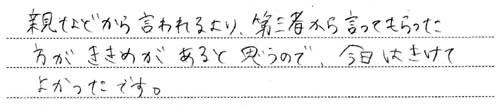 親などから言われるより、第三者から言ってもらった
方がききめがあると思うので、今日はきけて
よかったです。